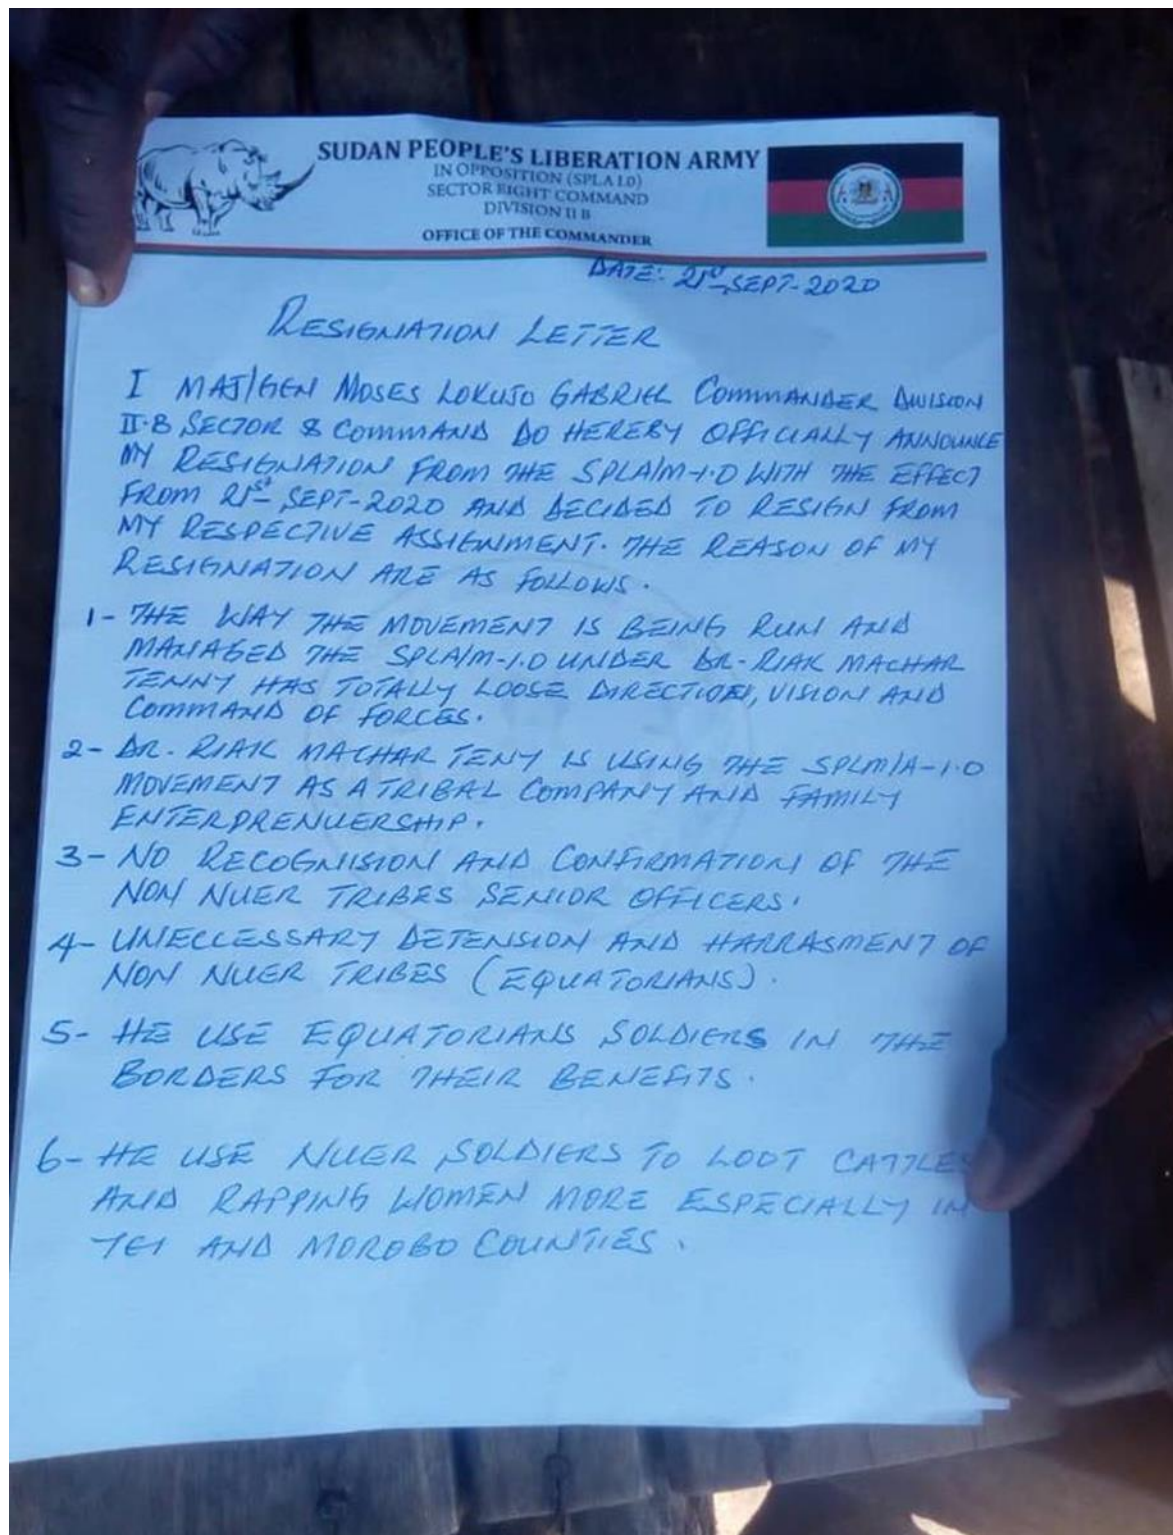 SUDAN PEOPLE'S LIBERATION ARMY
IN OPPOSITION (SPLA I.O)
SECTOR EIGHT COMMAND
DIVISION II B
OFFICE OF THE COMMANDER
DATE: 21st SEPT-2020
RESIGNATION LETTER
I MAJ/GEN MOSES LOKUJO GABRIEL COMMANDER DIVISION
II-B SECTOR 8 COMMAND DO HEREBY OFFICIALLY ANNOUNCE
MY RESIGNATION FROM THE SPLA/M-I.O WITH THE EFFECT
FROM 21st SEPT-2020 AND DECIDED TO RESIGN FROM
MY RESPECTIVE ASSIGNMENT. THE REASON OF MY
RESIGNATION ARE AS FOLLOWS.
1- THE WAY THE MOVEMENT IS BEING RUN AND
MANAGED THE SPLA/M-I.O UNDER DR-RIAK MACHAR
TENNY HAS TOTALLY LOOSE DIRECTION, VISION AND
COMMAND OF FORCES.
2- DR. RIAK MACHAR TENY IS USING THE SPLM/A-I.O
MOVEMENT AS A TRIBAL COMPANY AND FAMILY
ENTERPRENUERSHIP.
3- NO RECOGNISION AND CONFIRMATION OF THE
NON NUER TRIBES SENIOR OFFICERS.
4- UNECCESSARY DETENSION AND HARRASMENT OF
NON NUER TRIBES (EQUATORIANS).
5- HE USE EQUATORIANS SOLDIERS IN THE
BORDERS FOR THEIR BENEFITS.
6- HE USE NUER SOLDIERS TO LOOT CATTLES
AND RAPPING WOMEN MORE ESPECIALLY IN
YEI AND MOROBO COUNTIES.